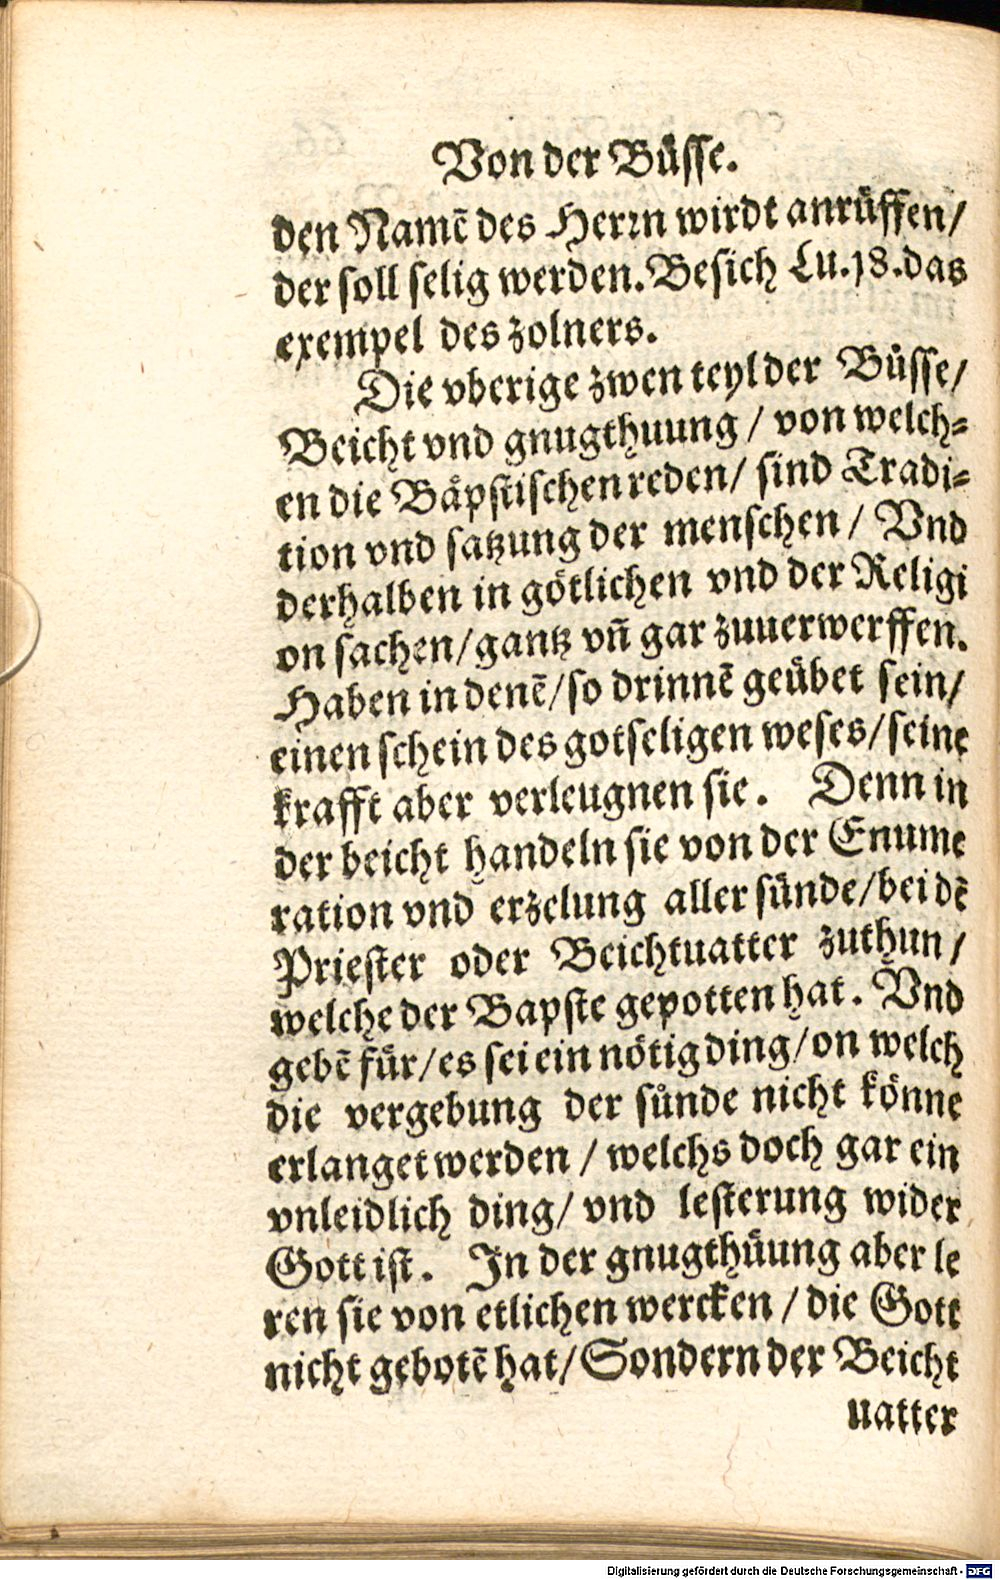 Von der Bůsse.
den Namē des Herrn wirdt anrüffen/
der soll selig werden. Besich Lu. 18. das
exempel des zolners.
Die vberige zwen teyl der Bůsse/
Beicht vnd gnugthuung / von welch⸗
en die Båpstischen reden/ sind Tradi⸗
tion vnd satzung der menschen / Vnd
derhalben in götlichen vnd der Religi
on sachen/gantz vn̄ gar zuuerwerffen.
Haben in denē/so drinnē geübet sein/
einen schein des gotseligen weses/seine
krafft aber verleugnen sie. Denn in
der beicht handeln sie von der Enume
ration vnd erzelung aller sünde/bei dē
Priester oder Beichtuatter zuthun /
welche der Bapste gepotten hat. Vnd
gebē für/es sei ein nötig ding/on welch
die vergebung der sůnde nicht könne
erlanget werden / welchs doch gar ein
vnleidlich ding/ vnd lesterung wider
Gott ist. In der gnugthüung aber le
ren sie von etlichen wercken / die Gott
nicht gebotē hat/Sondern der Beicht
uatter
Digitalisierung gefördert durch die Deutsche Forschungsgemeinschaft - DFG